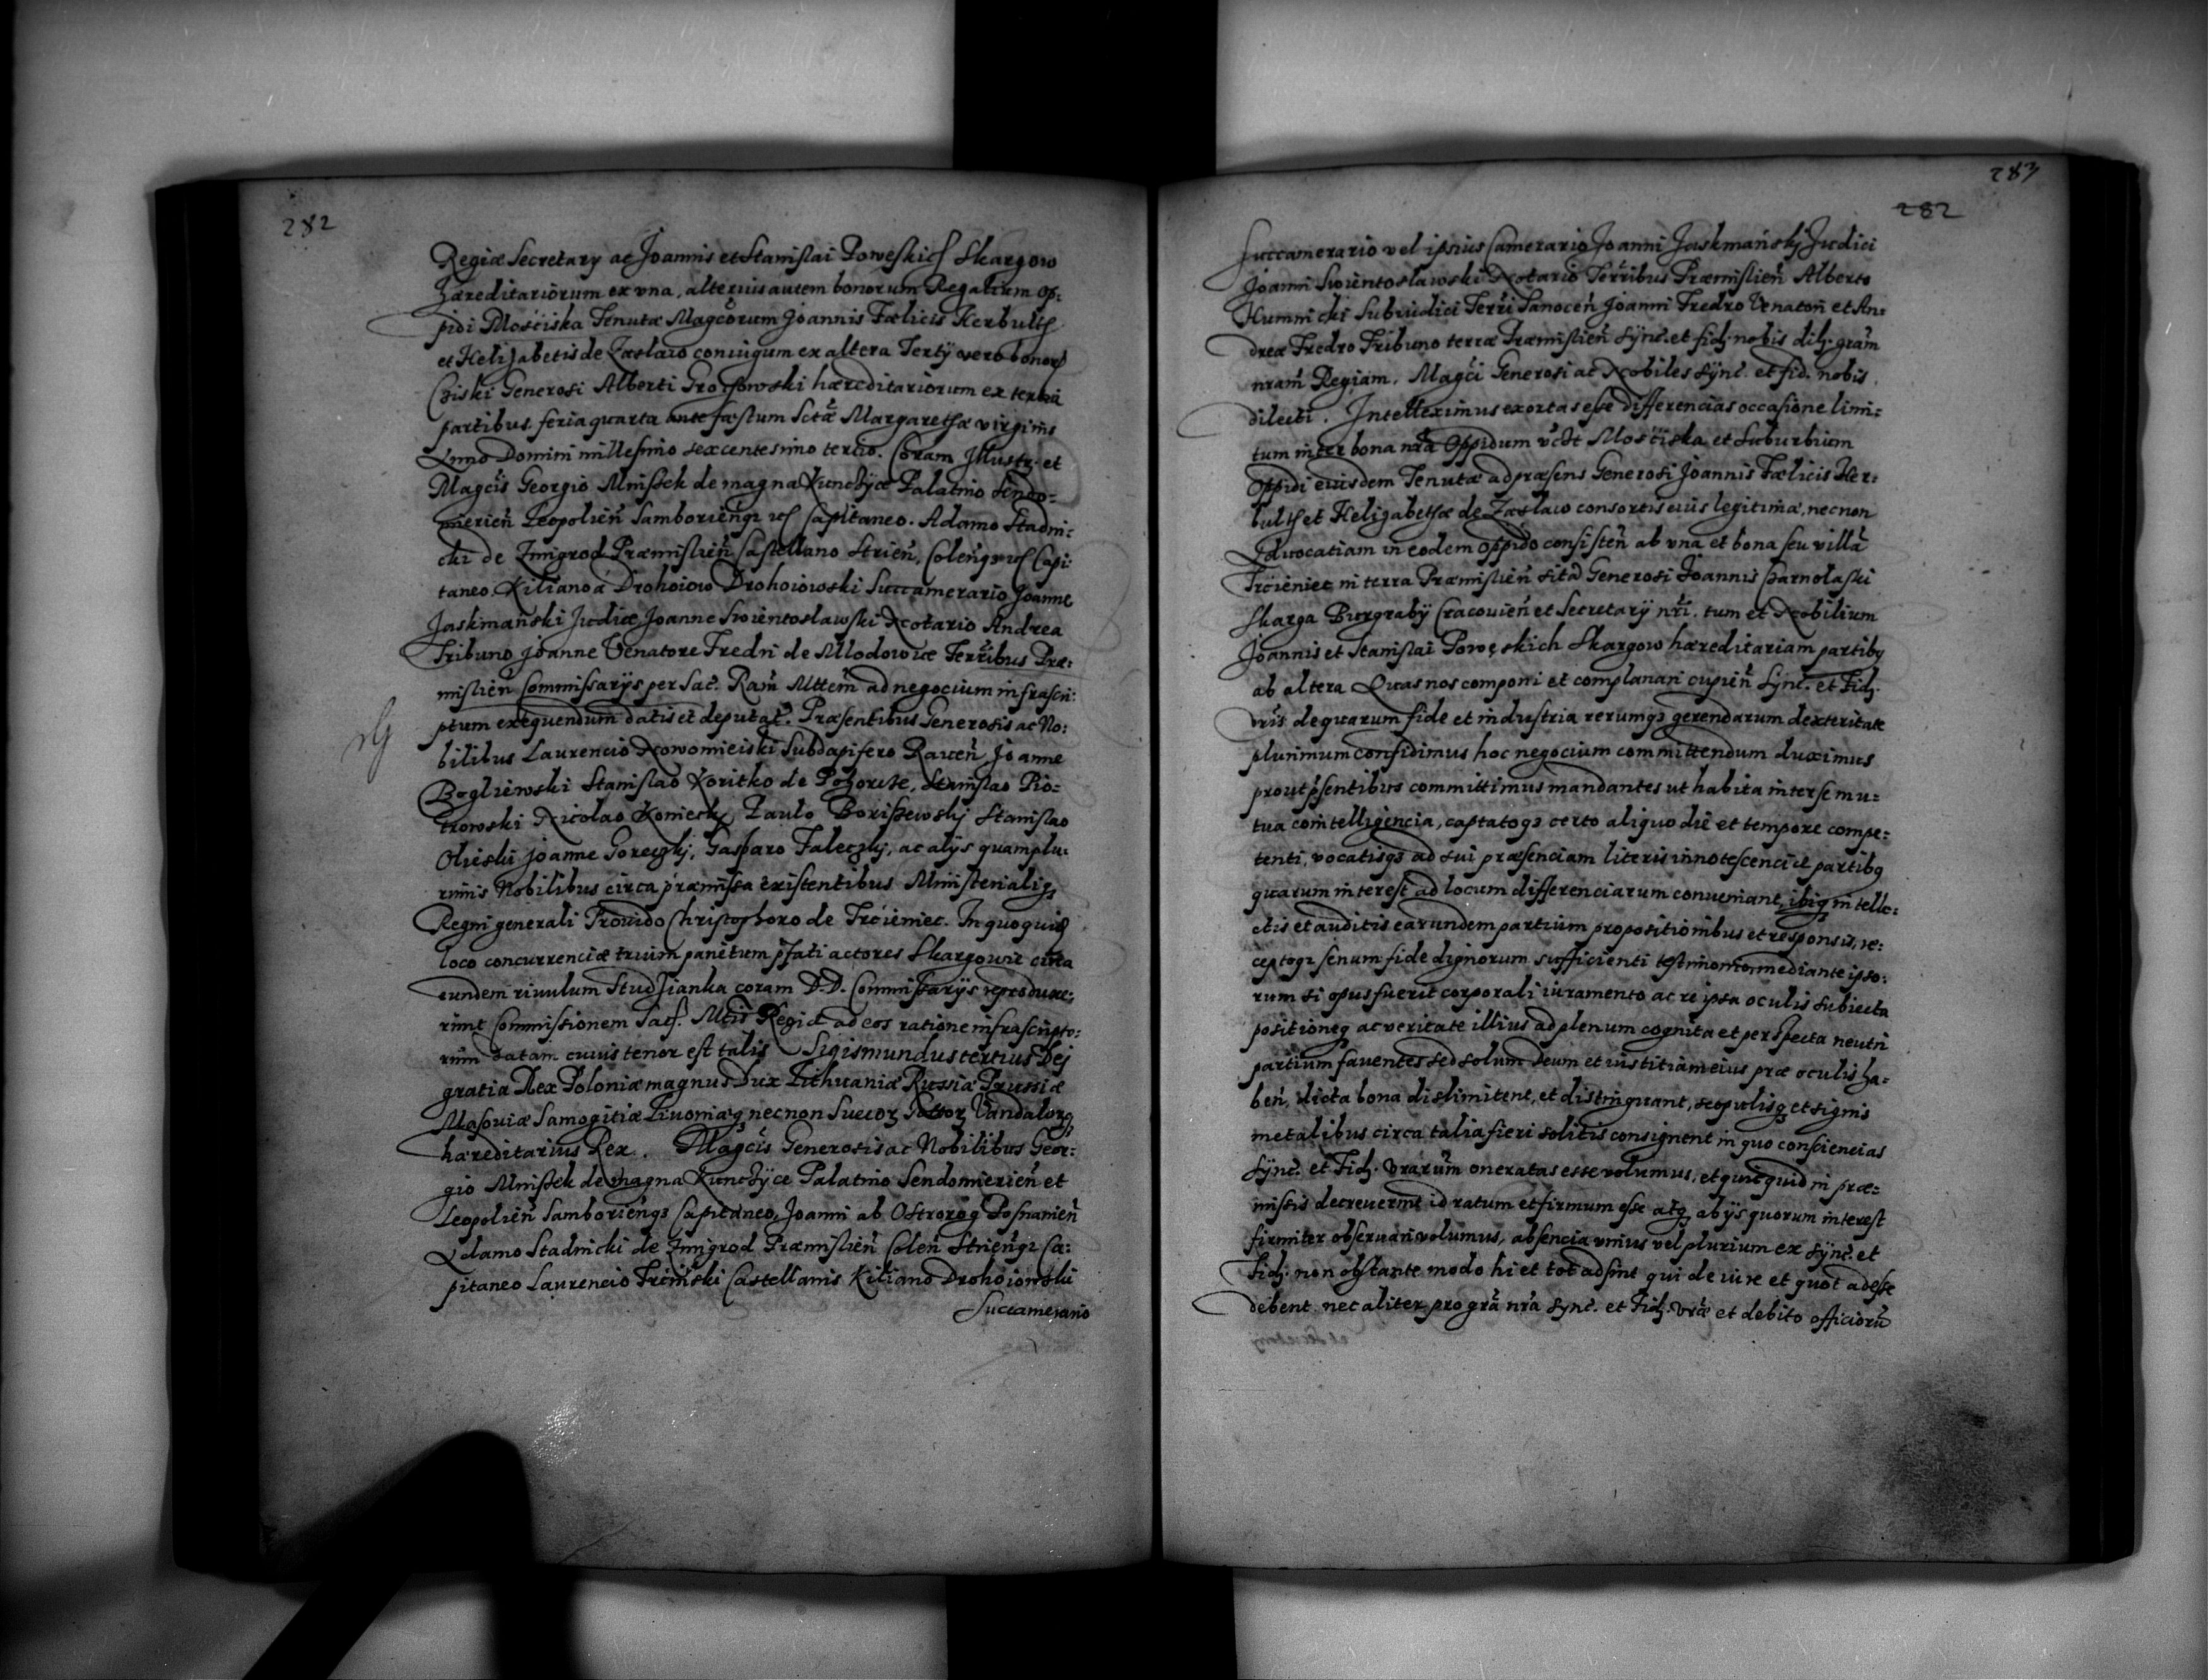 282
Regiæ Secretary ac Joannis et Stanislai Poweskich Skargow
hæreditariorum ex vna, alterius autem bonorum Regalium op:
pidi Mosciska Tenutæ Magcorum Joannis Fælicis Herbulth
et Helizabetis de Zaslaw coniugum ex altera Tertÿ vero bonorum
Generosi Alberti hæreditariorum ex tertia
partibus. feria quarta ante fæstum Sctæ Margarethæ virginis
Anno Domini millesimo sexcentesimo tertio. Coram Jllustr. et
Magcis Georgio Mnissek de magna Kunczÿce Palatino Sendo=
mirien Leopolien Samborienqz Capitaneo. Adamo Stadni:
cki de Zmigrod Præmislien Castellano Strien, Colenqz Capi:
taneo. Kiliano a Drohoiow Drohoiowski Succamerario Joanne
Jaskmański Judice Joanne Swientoslawski Notario Andrea
Tribuno Joanne Venatore Fredri de Mlodowice Terribus Præ:
mislien Commissarÿs per Sac. Ram Mttem ad negocium infrascri:
ptum exequendum datis et deputat. Præsentibus Generosis ac No:
bilibus Laurencio Nowomieiski Subdapifero Raven, Joanne
Bogliewski Stanislao Koritko de Stanislao Pio=
trowski Nicolao Koniecky Paulo Borissewsky Stanislao
Olieski Joanne Goreczky, Gasparo Faleczky, ac alÿs quamplu:
rimis Nobilibus circa præmissa existentibus Ministerialiqz
Regni generali Prouido Christophoro de Trcieniec. In quoquidem
loco concurrenciæ trium parietum pfati actores Skargowie circa
eundem riuulum Studzianka coram D.D. Commissarÿs reproduxe:
runt Commissionem Sac. Mtis Regiæ ad eos ratione infrascripto:
rum datam cuius tenor est talis Sigismundus tertius Dei
gratia Rex Poloniæ magnus Dux Lithuaniæ Russiæ Prussiæ
Masouiæ Samogitiæ Liuoniæqz necnon Suecor Gottor Vandalorqz
hæreditarius Rex. Magcis Generosis ac Nobilibus Geor:
gio Mnissek de magna Kunczÿce Palatino Sendomirien et
Leopolien Samborienqz Capitaneo, Joanni ab Ostrorog Posnanien
Adamo Stadnicki de Zmigrod Præmislien Colen Strienqz Ca:
pitaneo Laurencio Castellanis Kiliano Drohoiowski
Succamerario
283
282
Succamerario vel ipsius Camerario Joanni Jaskmański Judici
Joanni Swientoslawski Notario Terribus Præmislien Alberto
Humnicki Subiudici Terri Sanocen Joanni Fredro Venatori et An:
dreæ Fredro Tribuno terræ Præmislien Sÿnc. et fid. nobis dil. gram
nram Regiam. Magci Generosi ac Nobiles Sÿnc. et fid. nobis
dilecti. Intelleximus exortas esse differencias occasione limi:
tum inter bona nra Oppidum Mosciska et suburbium
Oppidi eiusdem Tenutæ ad præsens Generosi Joannis Fælicis Her:
bulth et Helizabethæ de Zaslaw consortis eius legitimæ, necnon
Aduocatiam in eodem oppido consisten ab vna et bona seu villa
Trcieniec in terra Præmislien sita Generosi Joannis Czarnolaski
Skarga Burgrabÿ Cracouien et Secretarÿ nri. tum et Nobilium
Joannis et Stanislai Powęskich Skargow hæreditariam partibus
ab altera Quas nos componi et complanari cupien Sÿnc. et Fid.
vris de quarum fide et industria rerumqz gerendarum dexteritate
plurimum confidimus hoc negocium committendum duximus
prout psentibus committimus mandantes ut habita inter se mu=
tua cointelligencia, captatoqz certo aliquo die et tempore compe:
tenti, vocatisqz ad sui præsenciam literis innotescenciæ partibus
quarum interest ad locum differenciarum conueniant, ibiqz intelle:
ctis et auditis earundem partium propositionibus et responsis, re:
ceptoqz senum fide dignorum sufficienti testimonio mediante ipso:
rum si opus fuerit corporali iuramento ac re ipsa oculis subiecta
positioneqz ac veritate illius ad plenum cognita et perspecta neutri
partium fauentes sed solum Deum et iustitiam eius præ oculis ha=
ben, dicta bona dislimitent, et distinguant, scopulisqz et signis
metalibus circa talia fieri solitis consignent in quo consciencias
Sÿnc. et Fid. vrarum oneratas esse volumus, et quicquid in præ=
missis decreuerint id ratum et firmum esse atqz ab ijs quorum interest
firmiter obseruari volumus, absencia vnius vel plurium ex Sÿnc. et
Fid. non obstante modo hi et tot adsint qui de iure et quot adesse
debent nec aliter pro gra nra Sync. et Fid. vræ et debito officioru